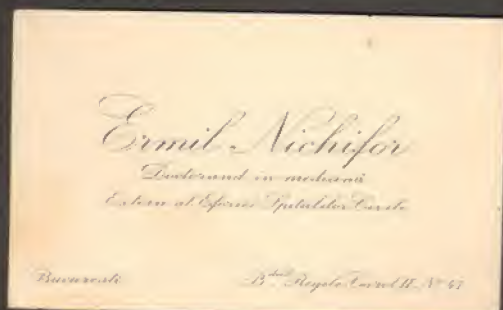 Ermil Nichifor
Doctorand in medicină
Extern al Eforiei Spitalelor Civile
Bucuresti
B-dul Regele Carol II. Nº 47